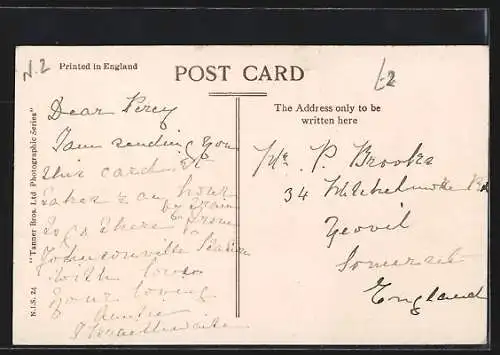 N.2
Printed in England
POST CARD
"Tanner Bros. Ltd Photographic Series"
N.I.S. 24
Dear Percy
I am sending you
this card it
takes ¾ an hour
by Train
to go there from
Johnsonville Station
with love
your loving
Auntie
The Address only to be
written here
Mr. P. Brooks
34
Yeovil
Somerset
England